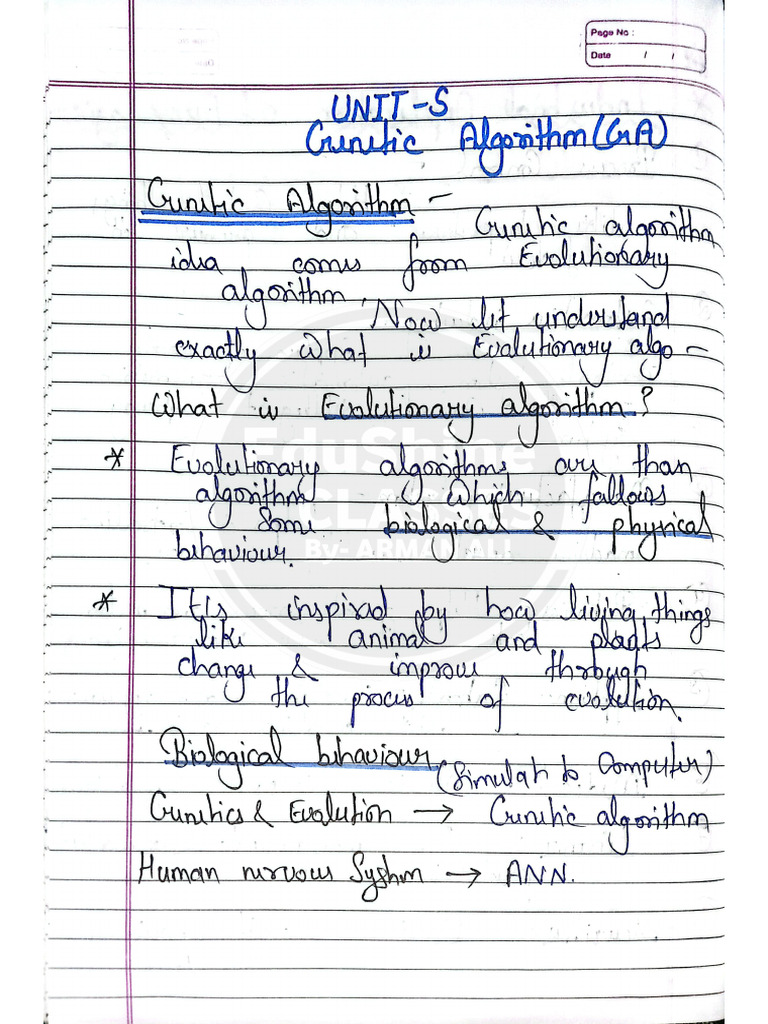 Page No :
Date / /
UNIT-5
Genetic Algorithm (GA)
Genetic Algorithm -
Genetic algorithm
idea comes from Evolutionary
algorithm, Now let understand
exactly what is Evolutionary algo -
What is Evolutionary algorithm?
* Evolutionary algorithms are than
algorithm which follows
some biological & physical
behaviour.
* It is inspired by how living things
like animal and plants
change & improve through
the process of evolution.
Biological behaviour (Simulate to Computer)
Genetics & Evolution → Genetic algorithm
Human nervous System → ANN.
EduShine
CLASSES
By- ARMAN ALI